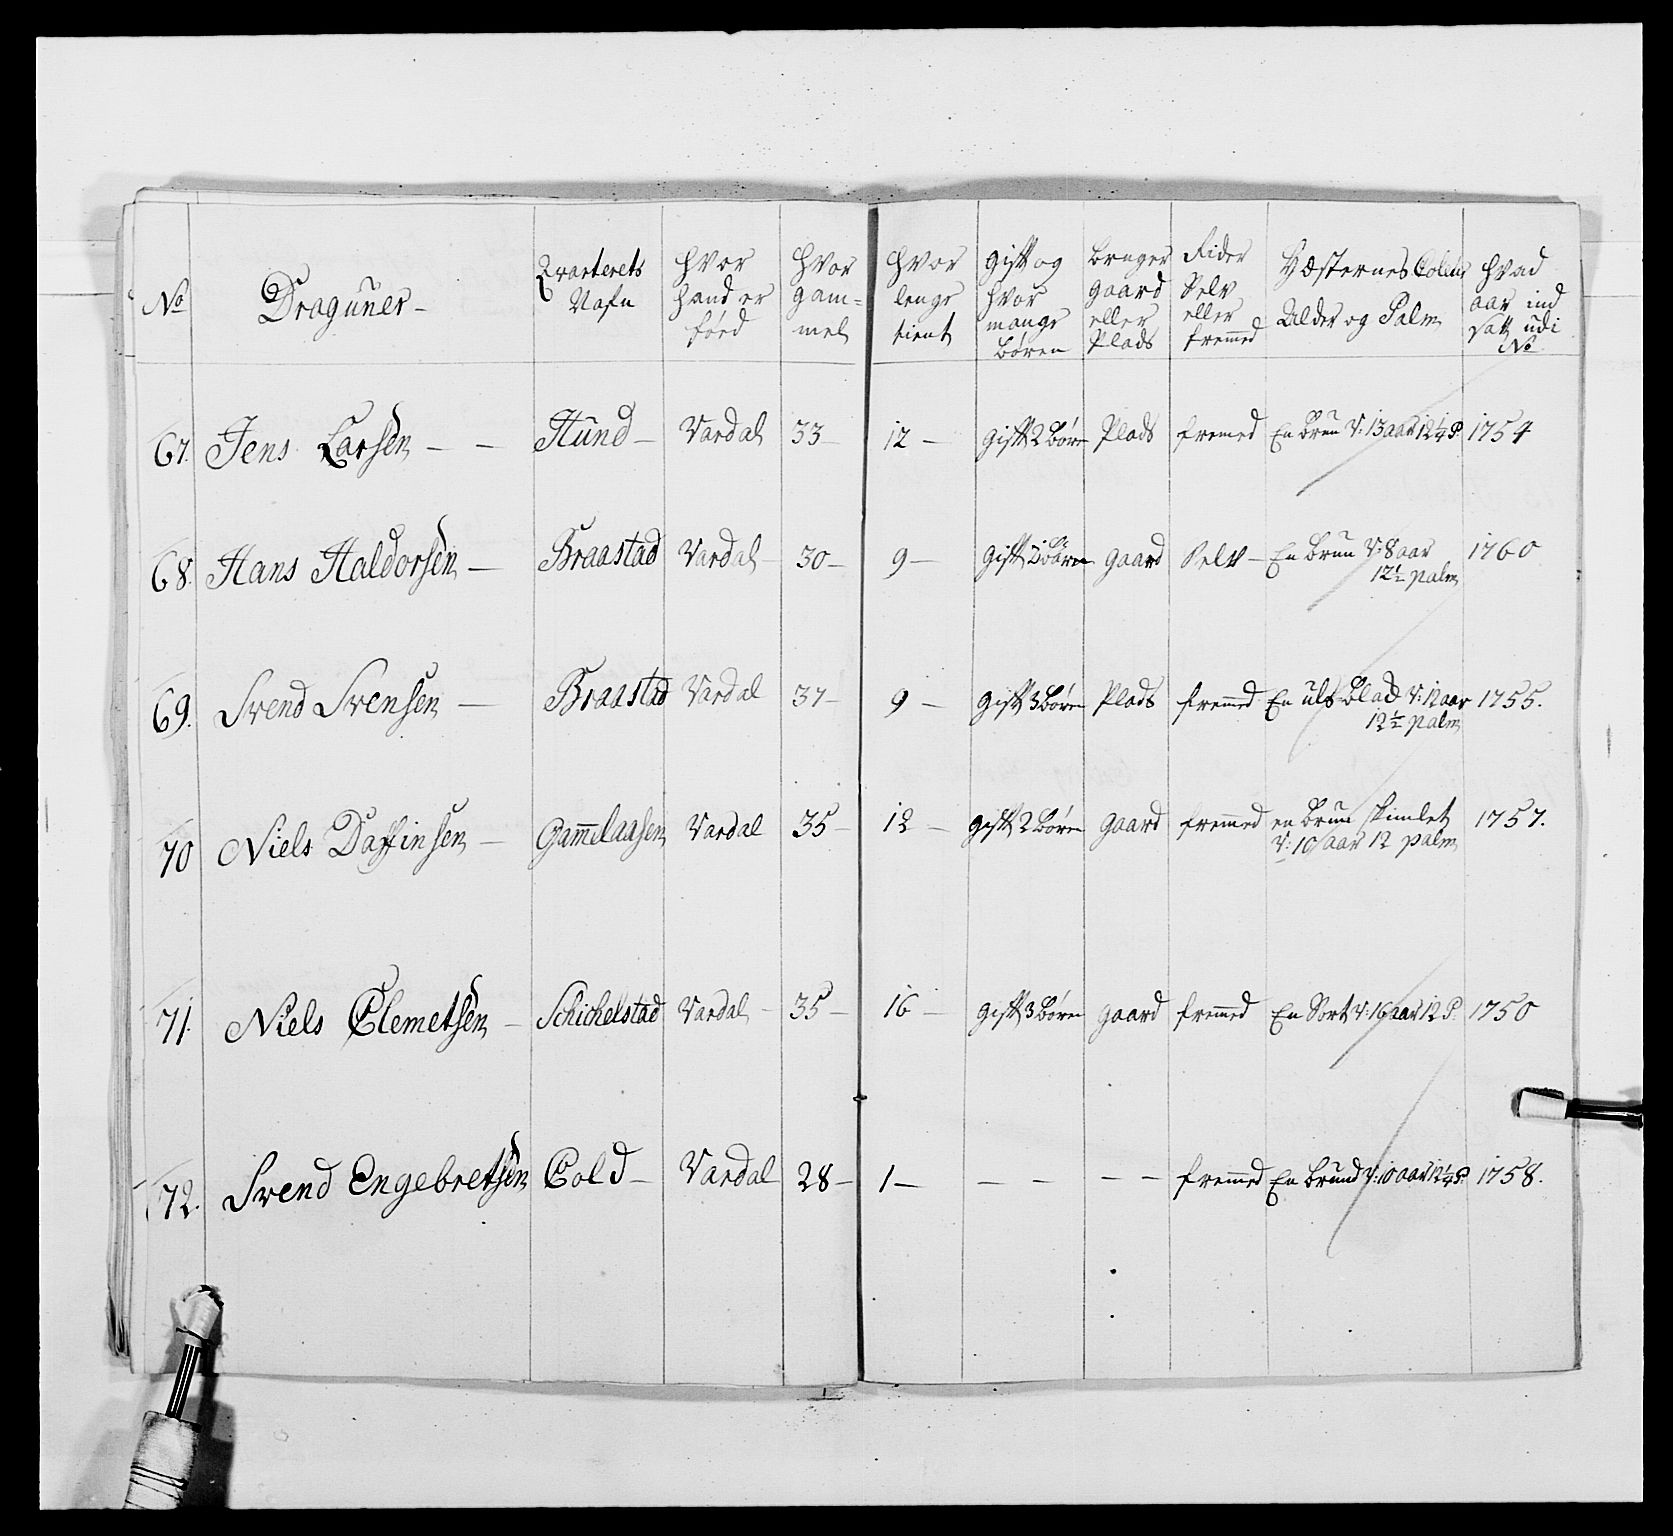 No
Draguner -
Qvarterets Nafn
hvor hand er föed
hvor gam= mel
hvor lenge tient
gift og hvor mange bören
bruger gaard eller Plads
Rider Selv eller fremmed
Hæsternes Colleur Alder og Palm
hvad aar ind satt udi No
67. Jens Larsen - - Hund - Vardal 33 - 12 - gift 2 bören Plads fremed En brun V: 13 aar 12¼ P. 1754
68. Hans Haldorsen - Braastad Vardal 30 - 9 - gift bören gaard Selv - En brun V: 8 aar 1760
12½ palm
69. Svend Svensen - Braastad Vardal 37 - 9 - gift 3 bören Plads fremmed En uls blad V: 12 aar 1755.
12½ palm
70 Niels Daffinsen - Gammelaasen Vardal 35 - 12 - gift 2 bören gaard fremmed en brun skimlet 1757.
V: 10 aar 12 palm
71. Niels Clemetsen - Schichelstad Vardal - 35 - 16 - gift 3 bören gaard fremmed En Sort V: 16 aar 12 P. 1750
72. Svend Engebretsen Cold - Vardal 28 - 1 - - - - - fremmed En brund V: 10 aar 12¼ P. 1758.